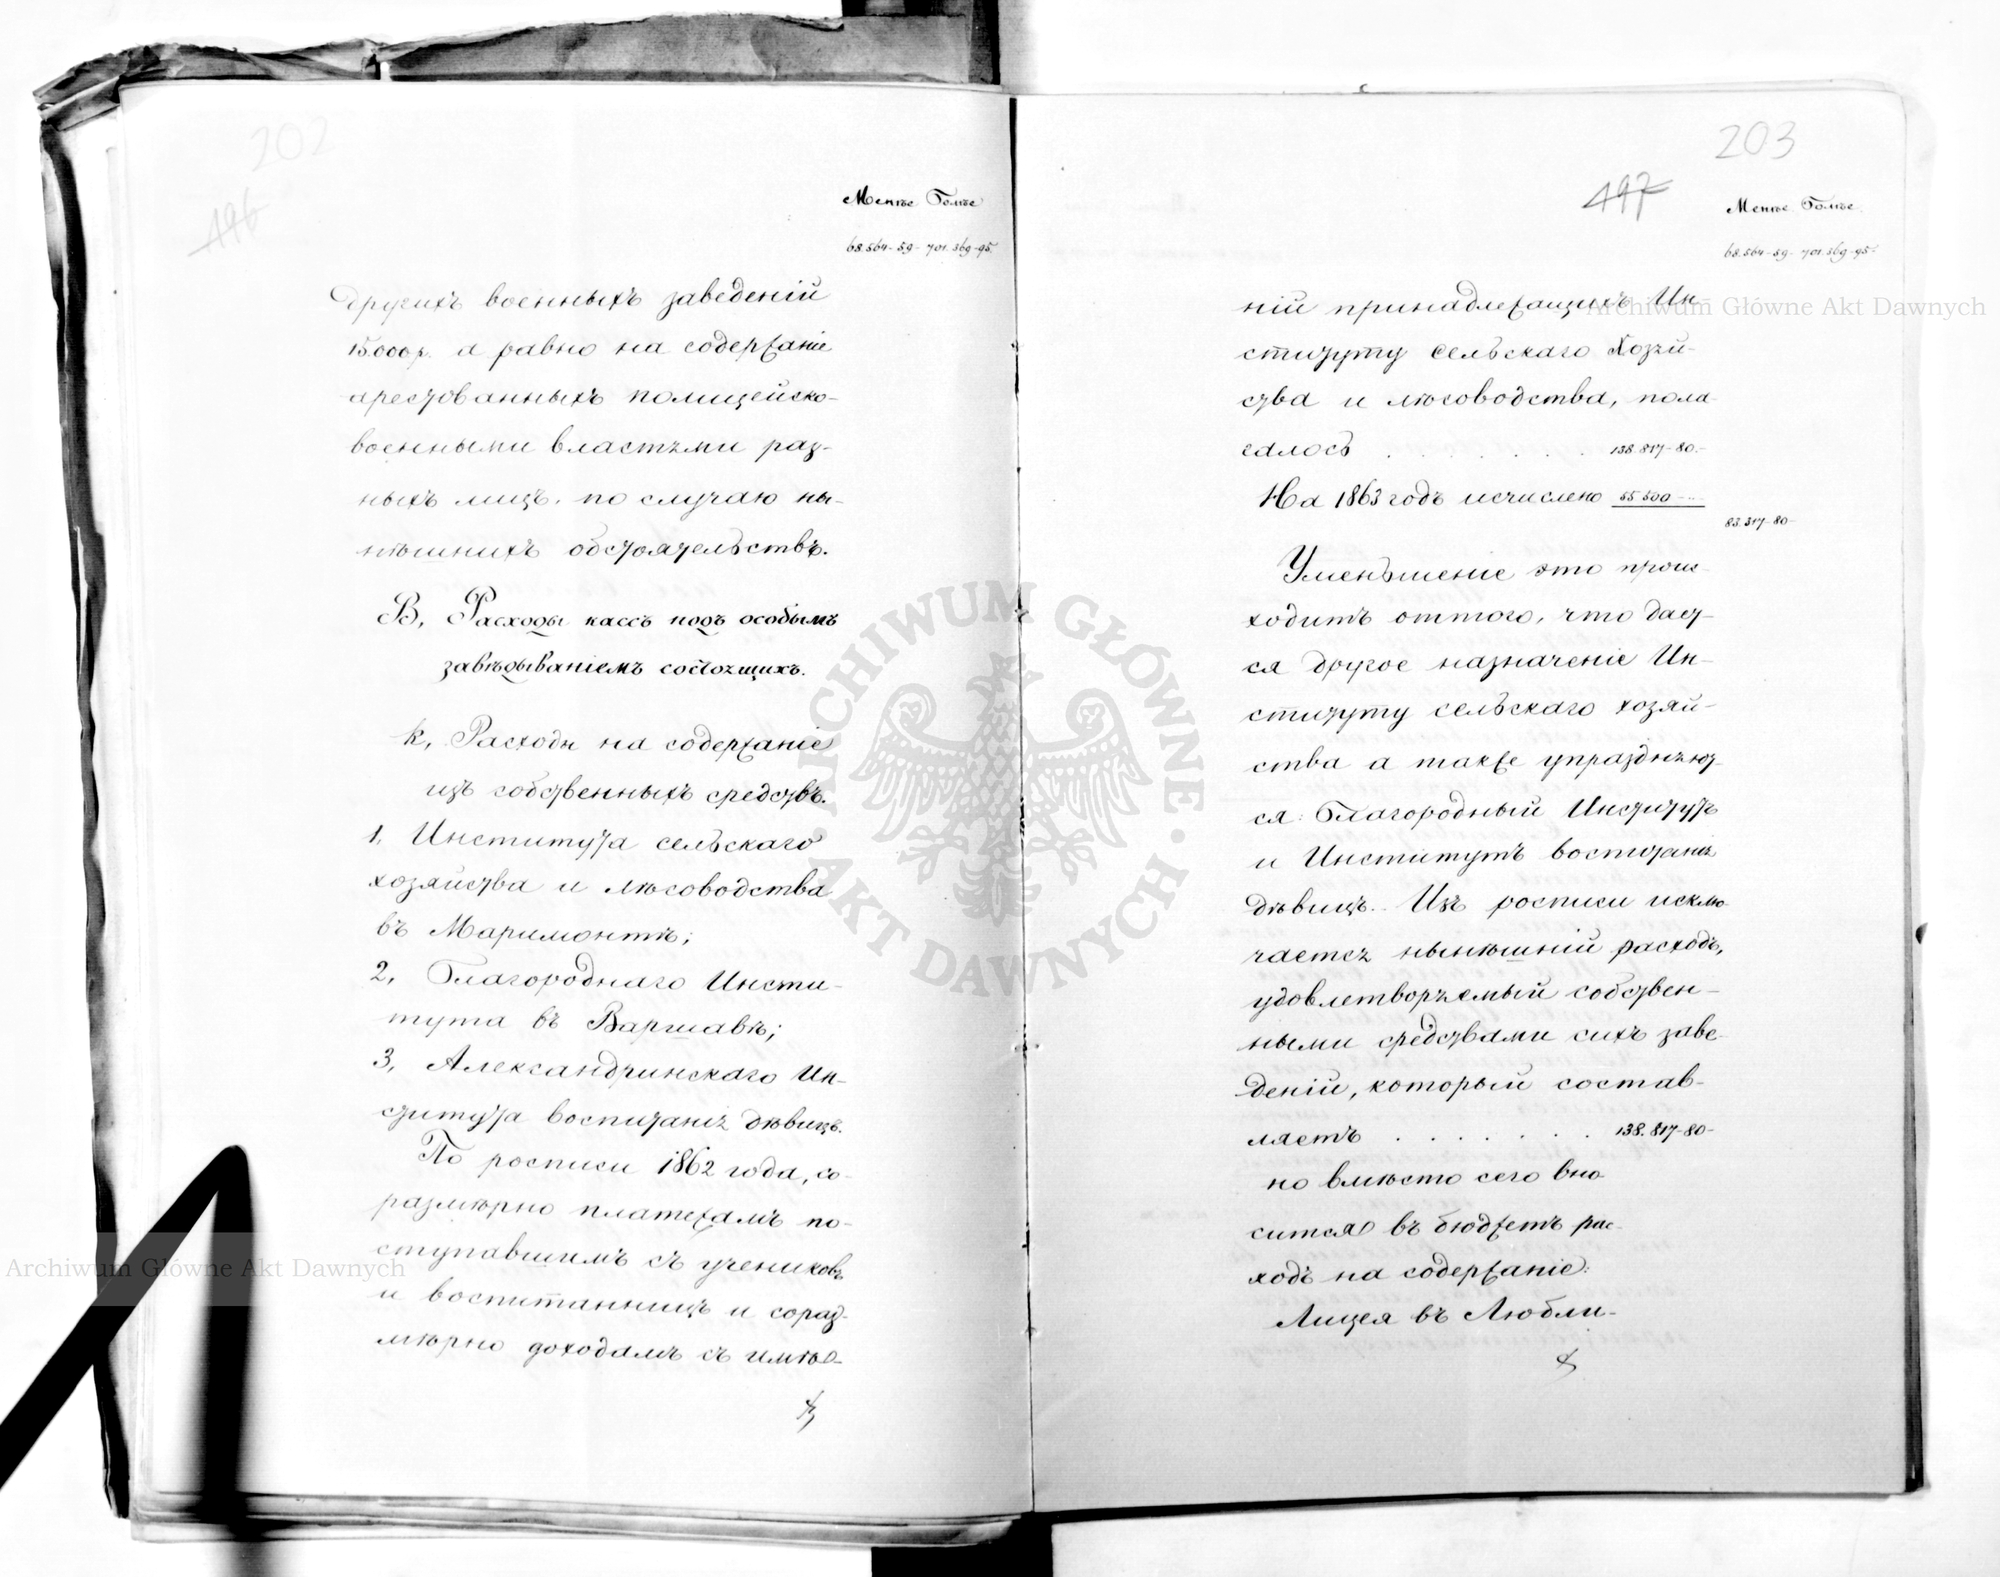 202
196
Менѣе Болѣе
68.564-59- 701.369-95.
другихъ военныхъ заведеній
15.000 р. а равно на содержаніе
арестованныхъ полицейско-
военными властями раз-
ныхъ лицъ, по случаю ны-
нѣшнихъ обстоятельствъ.
В, Расходы кассъ подъ особымъ
завѣдываніемъ состоящихъ.
к, Расходы на содержаніе
изъ собственныхъ средствъ.
1, Института сельскаго
хозяйства и лѣсоводства
въ Маримонтѣ;
2, Благороднаго Инсти-
тута въ Варшавѣ;
3, Александринскаго Ин-
ститута воспитанія дѣвицъ.
По росписи 1862 года, со-
размѣрно платежамъ по-
ступавшимъ съ учениковъ
и воспитанницъ и сораз-
мѣрно доходамъ съ имѣ-
203
197
Менѣе Болѣе
68.564-59- 701.369-95-
ній принадлежащихъ Ин-
ституту сельскаго Хозяй-
ства и лѣсоводства, пола-
галось . . . . . . 138.817-80.-
На 1863 годъ исчислено 55 500 - ..-
83.317-80-
Уменьшеніе это проис-
ходитъ оттого, что дает-
ся другое назначеніе Ин-
ституту сельскаго хозяй-
ства а также упраздняют-
ся: Благородный Институтъ
и Институтъ воспитанія
дѣвицъ. Изъ росписи исклю-
чается нынѣшній расходъ,
удовлетворяемый собствен-
ными средствами сихъ заве-
деній, который состав-
ляетъ . . . . . . . 138.817-80-
но вмѣсто сего вно
сится въ бюджетъ рас-
ходъ на содержаніе:
Лицея въ Любли-
Archiwum Główne Akt Dawnych
Archiwum Główne Akt Dawnych
ARCHIWUM GŁÓWNE AKT DAWNYCH